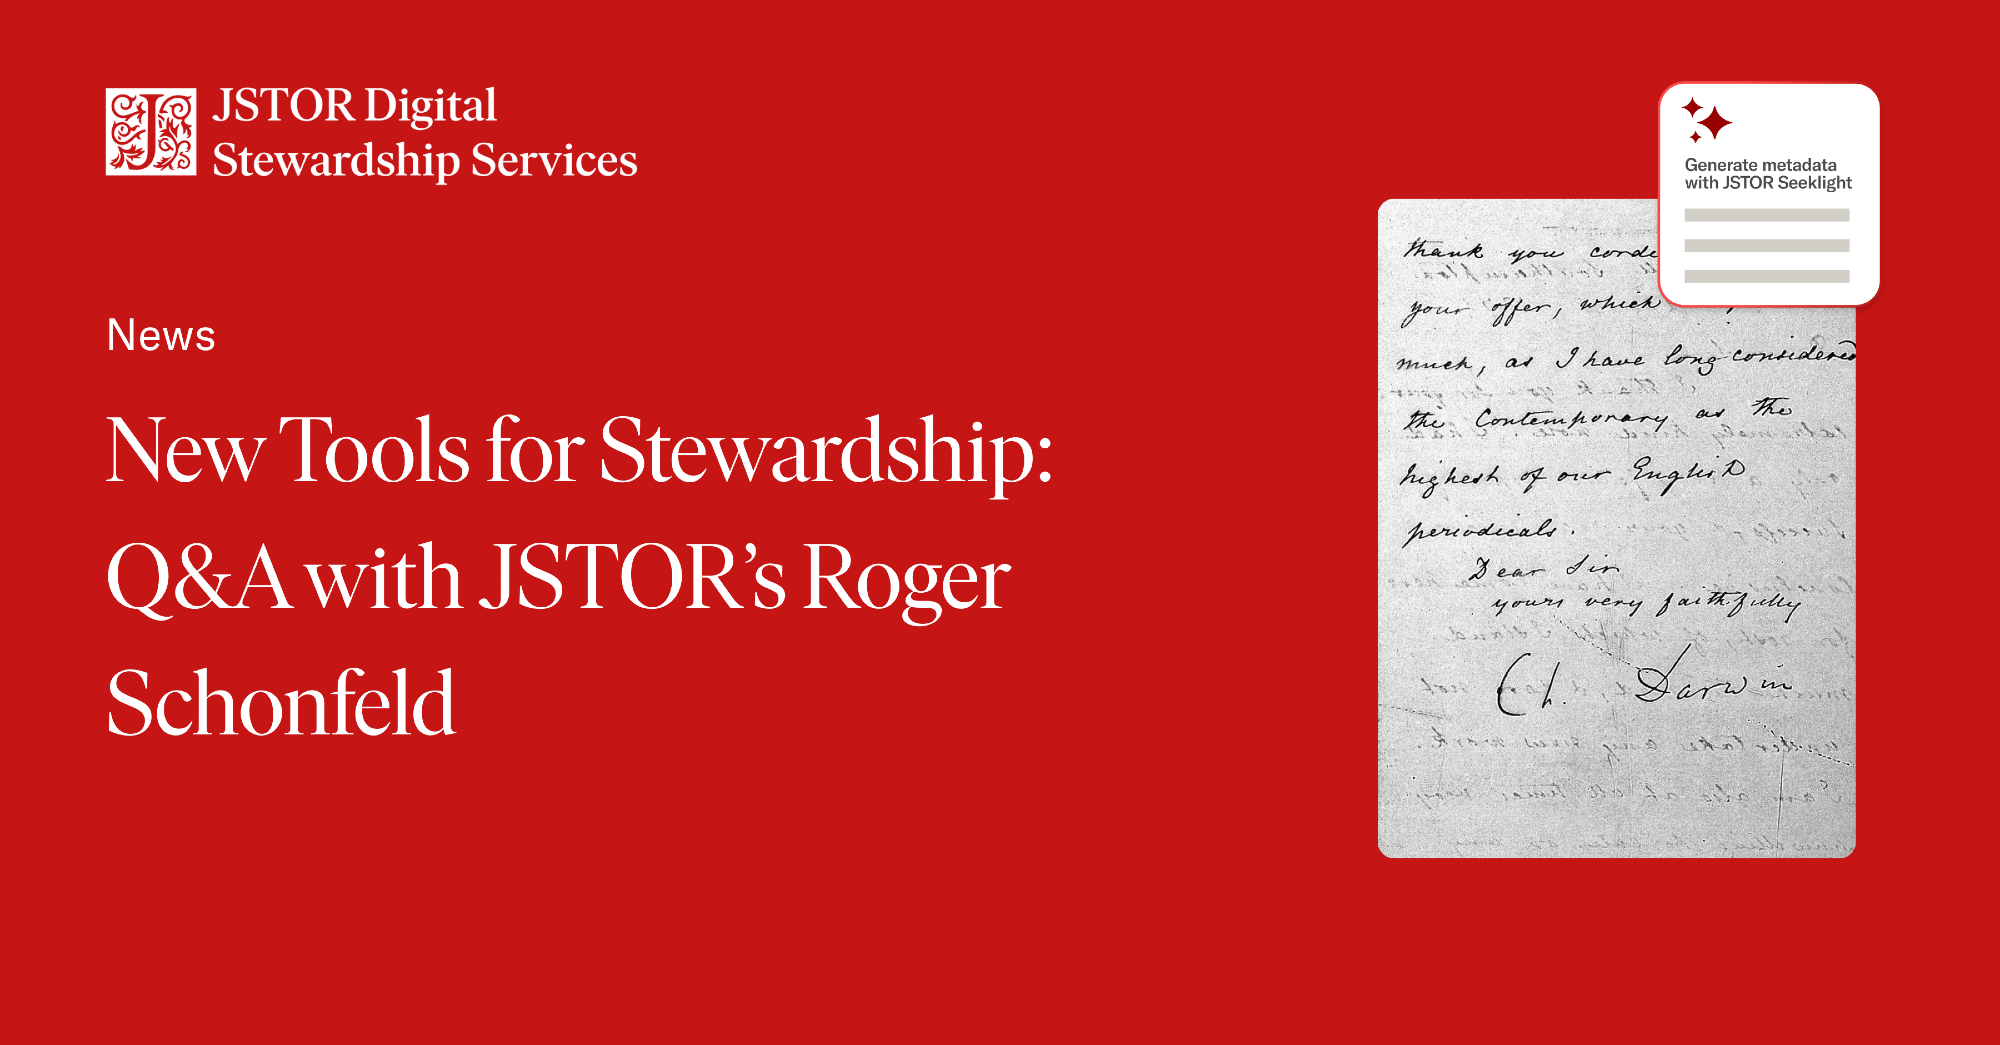 JSTOR Digital
Stewardship Services
News
New Tools for Stewardship:
Q&A with JSTOR’s Roger
Schonfeld
Generate metadata
with JSTOR Seeklight
thank you corde
your offer, which
much, as I have long considered
the Contemporary as the
highest of our English
periodicals.
Dear Sir
yours very faithfully
Ch. Darwin